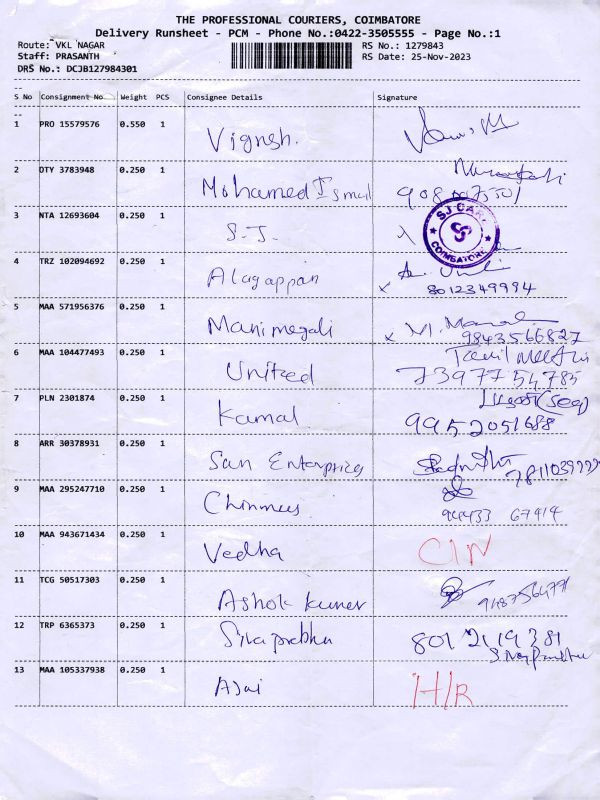 THE PROFESSIONAL COURIERS, COIMBATORE
Delivery Runsheet - PCM - Phone No.:0422-3505555 - Page No.:1
Route: VKL NAGAR
RS No.: 1279843
Staff: PRASANTH
RS Date: 25-Nov-2023
DRS No.: DCJB127984301
--
S No Consignment No Weight PCS Consignee Details Signature
--
1 PRO 15579576 0.550 1 Vignsh.
2 DTY 3783948 0.250 1 Mohamed Ismail
3 NTA 12693604 0.250 1 S.J.
SJ CARE
COIMBATORE
4 TRZ 102094692 0.250 1 Alagappan
x 8012349994
5 MAA 571956376 0.250 1 Manimegali
x M.
9843566827
6 MAA 104477493 0.250 1 United
7397754785
7 PLN 2301874 0.250 1 Kamal
9952051688
8 ARR 30378931 0.250 1 San Enterprices
9 MAA 295247710 0.250 1
94433 67414
10 MAA 943671434 0.250 1 Vedha CIN
11 TCG 50517303 0.250 1 Ashok kumer
12 TRP 6365373 0.250 1 Sivaprabhu 8012119381
13 MAA 105337938 0.250 1 Ajai H/R